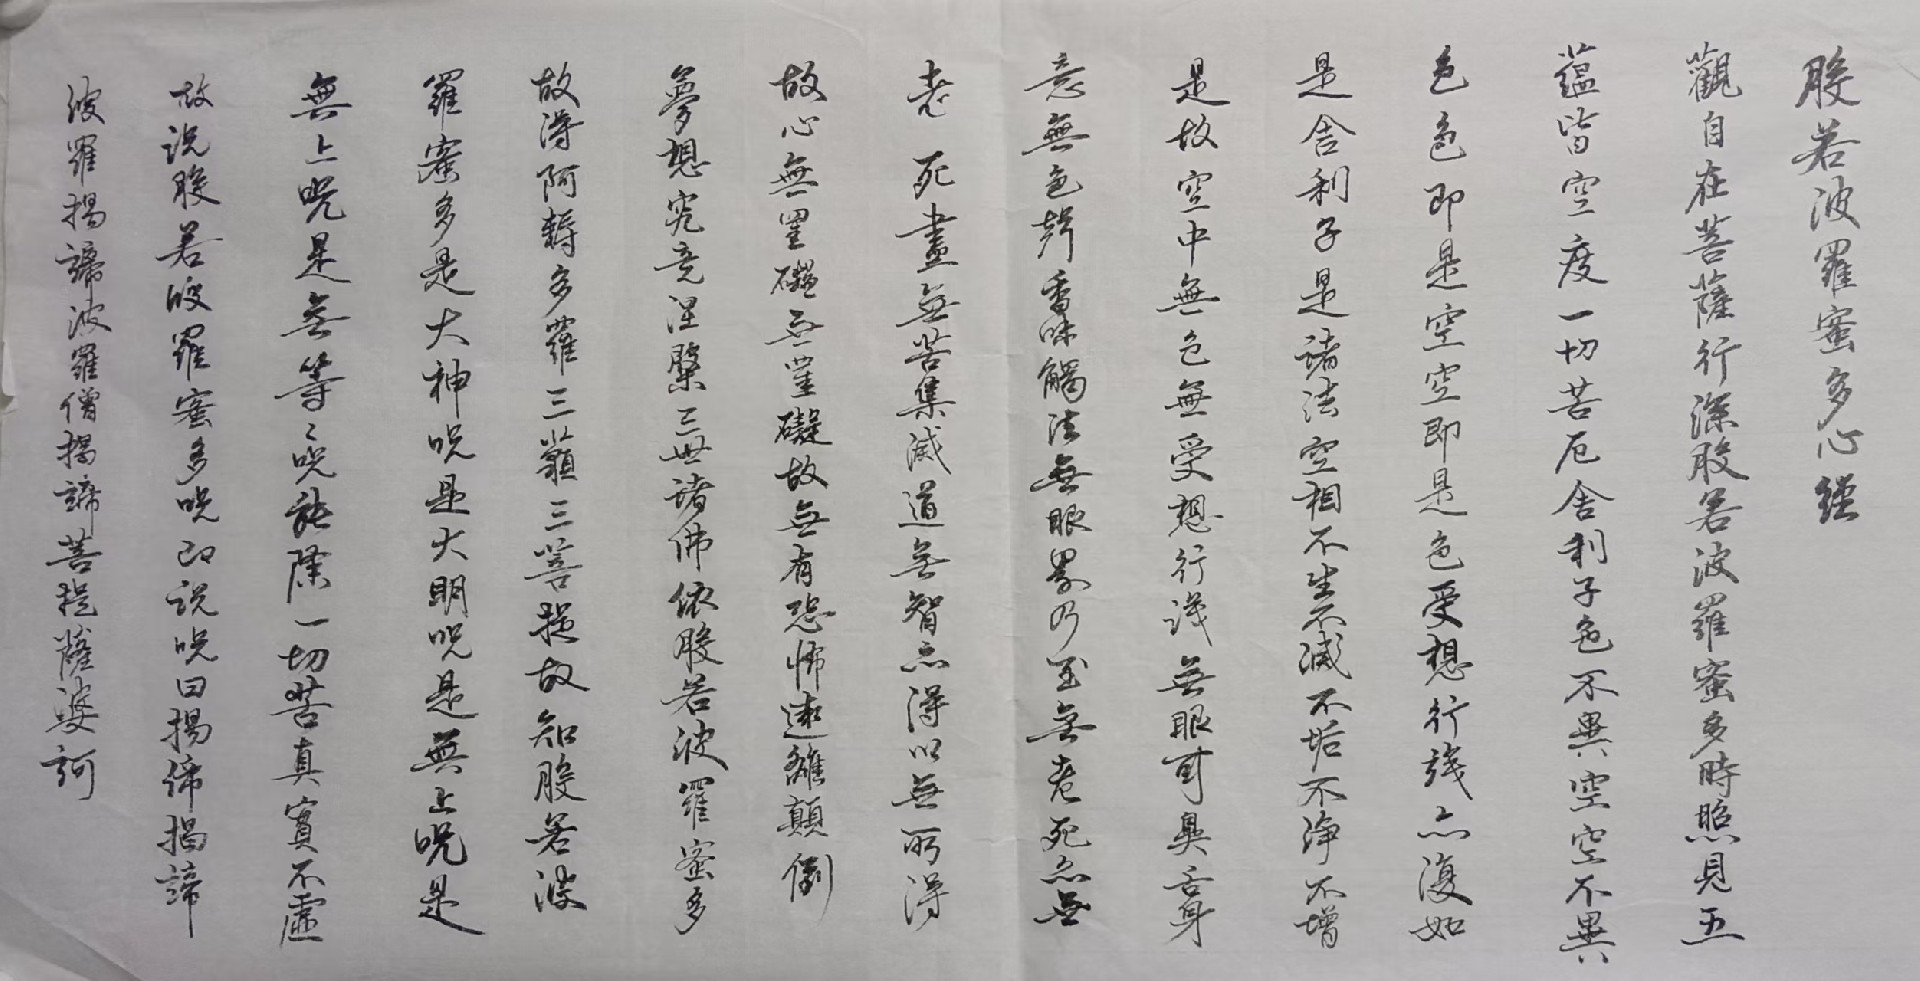 般若波羅蜜多心經
觀自在菩薩行深般若波羅蜜多時照見五
蘊皆空度一切苦厄舍利子色不異空空不異
色色即是空空即是色受想行識亦復如
是舍利子是諸法空相不生不滅不垢不淨不增
是故空中無色無受想行識無眼耳鼻舌身
意無色聲香味觸法無眼界乃至無老死亦無
老死盡無苦集滅道無智亦得以無所得
故心無罣礙無罣礙故無有恐怖遠離顛倒
夢想究竟涅槃三世諸佛依般若波羅蜜多
故得阿耨多羅三藐三菩提故知般若波
羅蜜多是大神咒是大明咒是無上咒是
無上咒是無等々咒能除一切苦真實不虛
故説般若波羅蜜多咒即説咒曰揭諦揭諦
波羅揭諦波羅僧揭諦菩提薩婆訶